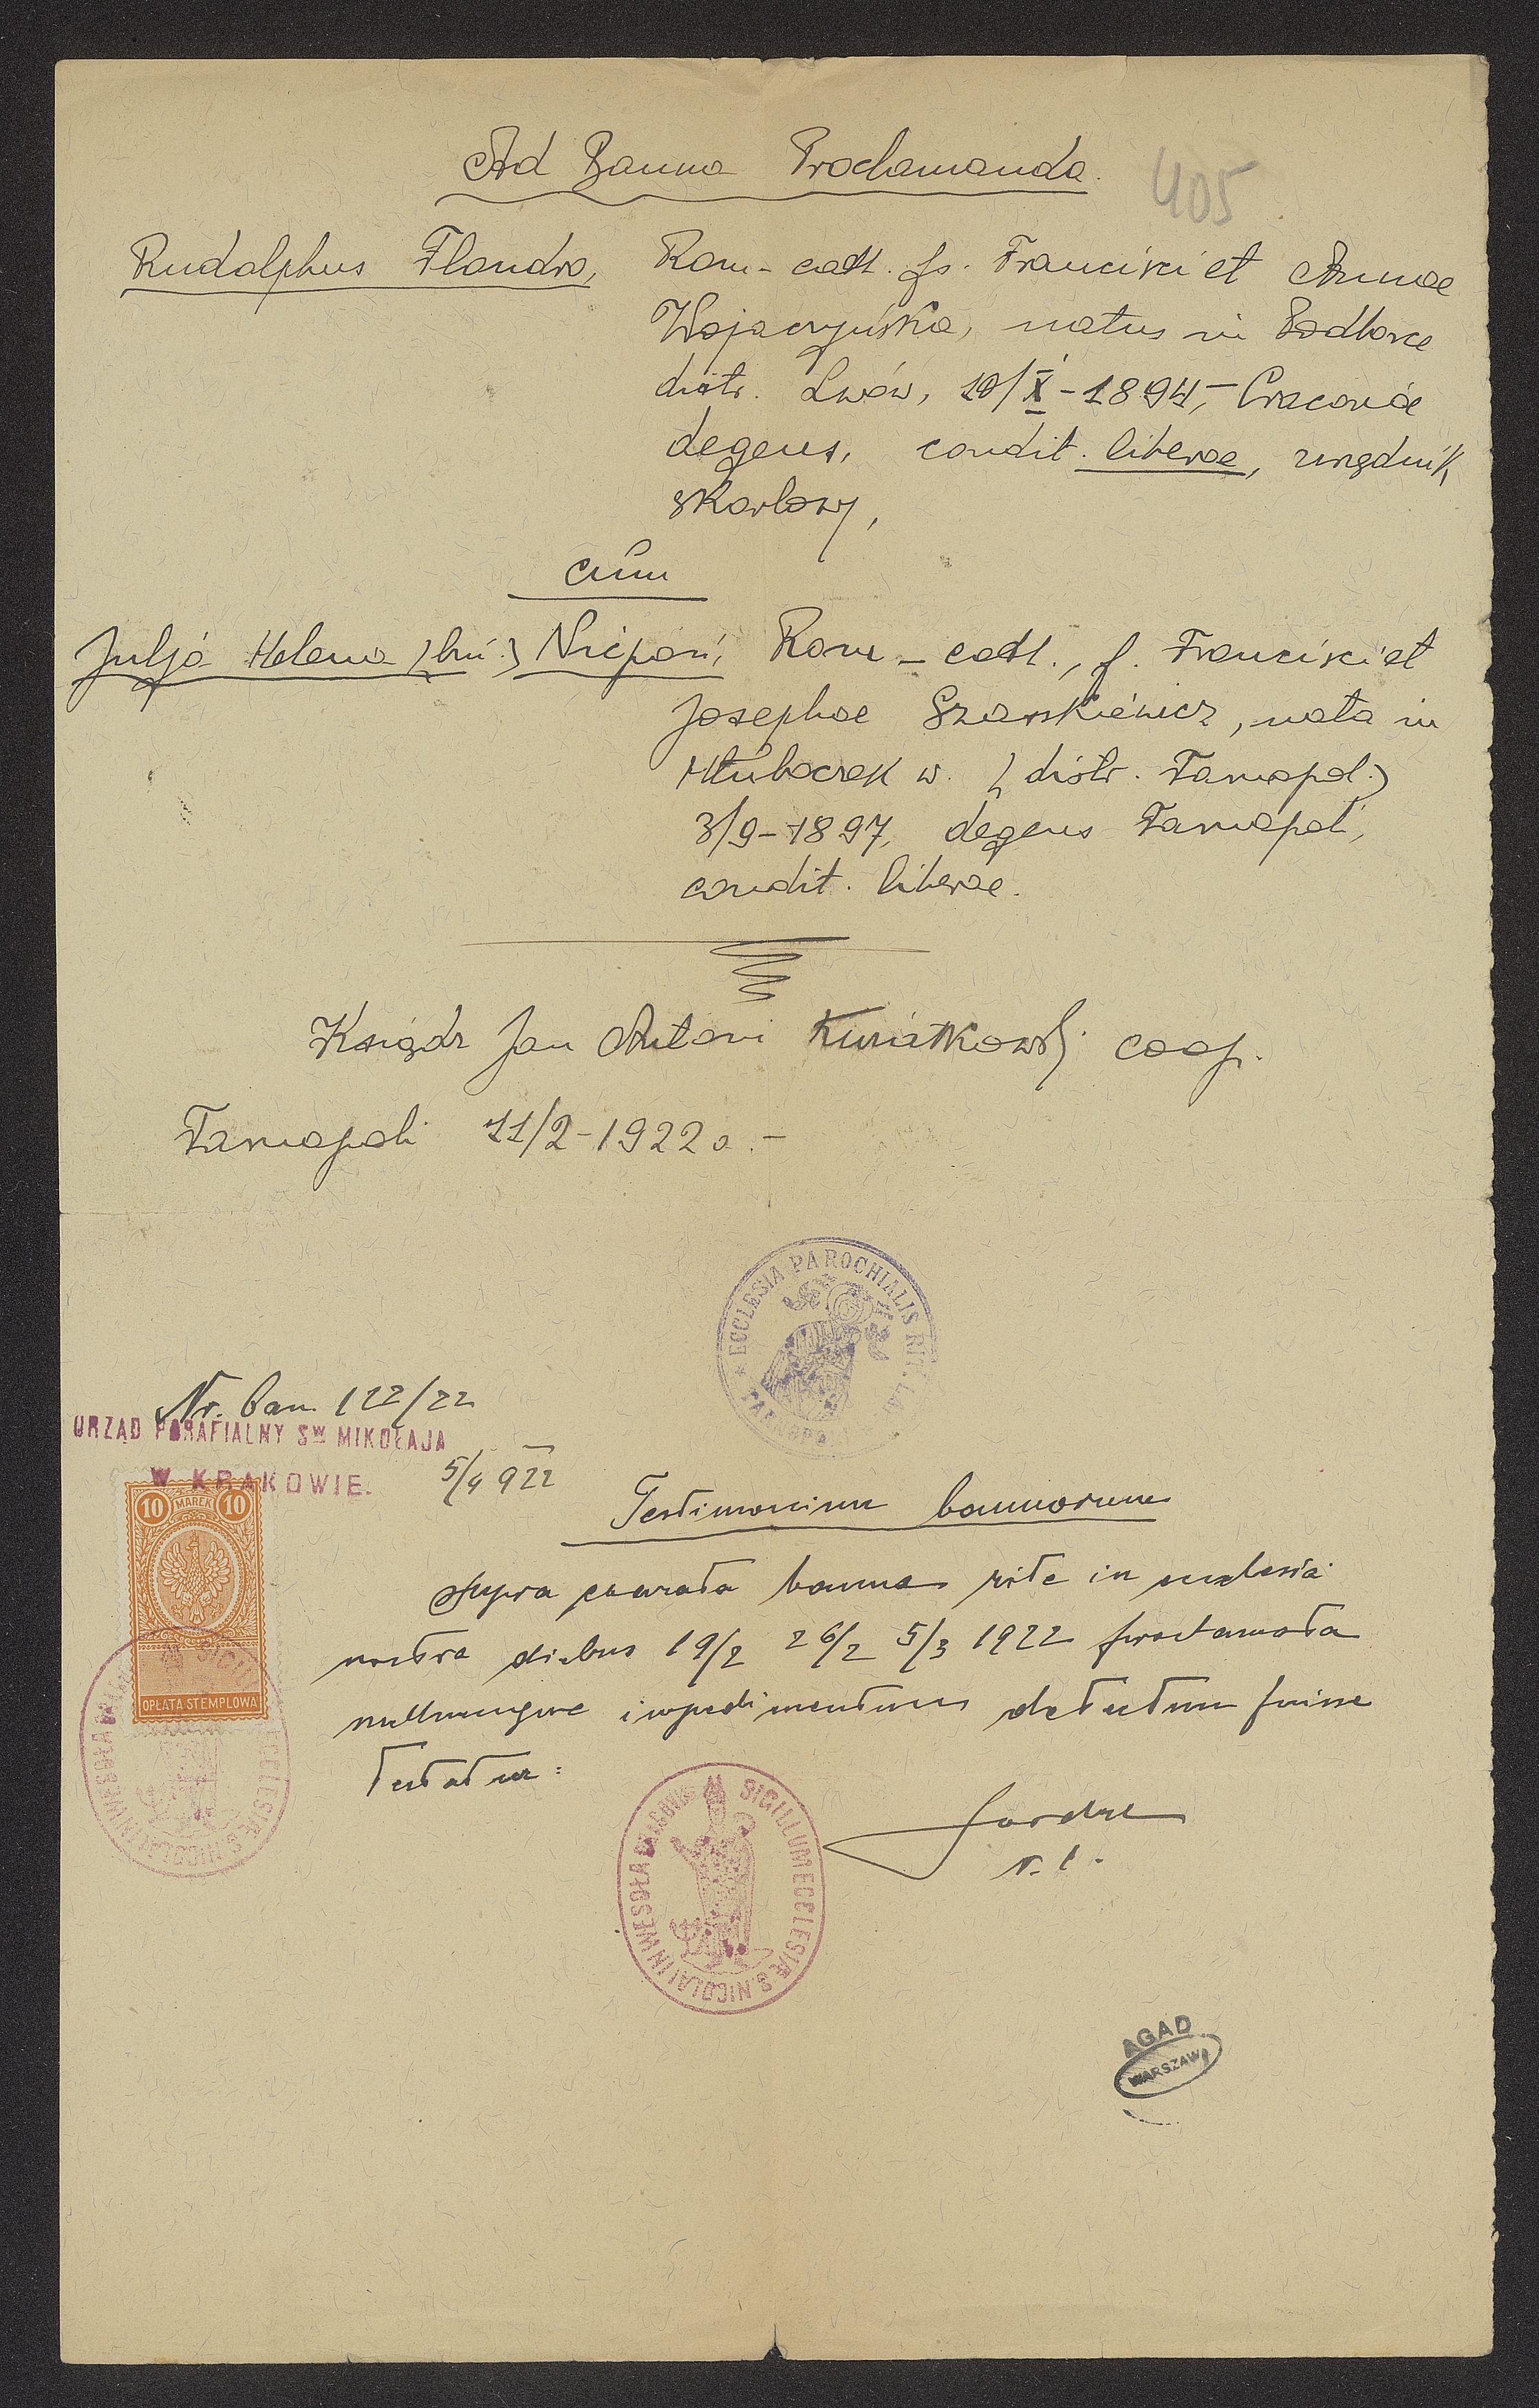 Ad Banna Proclamanda.
405
Rudolphus Flandro, Rom-cath. fs. Francisci et Annae
Wojaczyńska, natus in Podborce
distr. Lwów, 10/X-1894,- Cracoviae
degens, condit. liberae, urzędnik
skarbowy,
cum
Julja Helena (bin.) Nicpoń, Rom-cath., f. Francisci et
Josephae Szarskiewicz, nata in
Hłuboczek w. (distr. Tarnopol.)
3/9-1897, degens Tarnopoli,
condit. liberae.
Ksiądz Jan Antoni Kwiatkowski coop.
Tarnopoli 11/2-1922 a.-
ECCLESIA PAROCHIALIS RIT. LAT. TARNOPOLI
Nr. ban. 122/22
URZĄD PARAFIALNY SW. MIKOŁAJA
W KRAKOWIE.
5/4 922
10 MAREK 10
OPŁATA STEMPLOWA
Testimonium bannorum
Supra banna rite in ecclesia
nostra diebus 19/2 26/2 5/3 1922 proclamata
nullumque impedimentum detectum fuisse
testatur:
SIGILLUM ECCLESIÆ S. NICOLAI IN WESOŁA CRACOVIÆ
SIGILLUM ECCLESIÆ S. NICOLAI IN WESOŁA CRACOVIÆ
AGAD
WARSZAWA